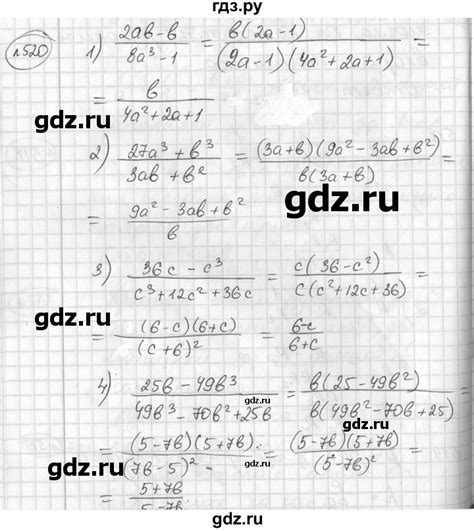 гдз.ру
n520
1) (2ab-b)/(8a³-1) = b(2a-1)/((2a-1)(4a²+2a+1)) =
= b/(4a²+2a+1)
gdz.ru
2) (27a³+b³)/(3ab+b²) = (3a+b)(9a²-3ab+b²)/(b(3a+b)) =
gdz.ru
= (9a²-3ab+b²)/b
gdz.ru
3) (36c-c³)/(c³+12c²+36c) = c(36-c²)/(c(c²+12c+36)) =
gdz.ru
= (6-c)(6+c)/(c+6)² = (6-c)/(6+c)
gdz.ru
4) (25b-49b³)/(49b³-70b²+25b) = b(25-49b²)/(b(49b²-70b+25)) =
gdz.ru
= (5-7b)(5+7b)/(7b-5)² = (5-7b)(5+7b)/(5-7b)² =
gdz.ru
= (5+7b)/(5-7b)
gdz.ru